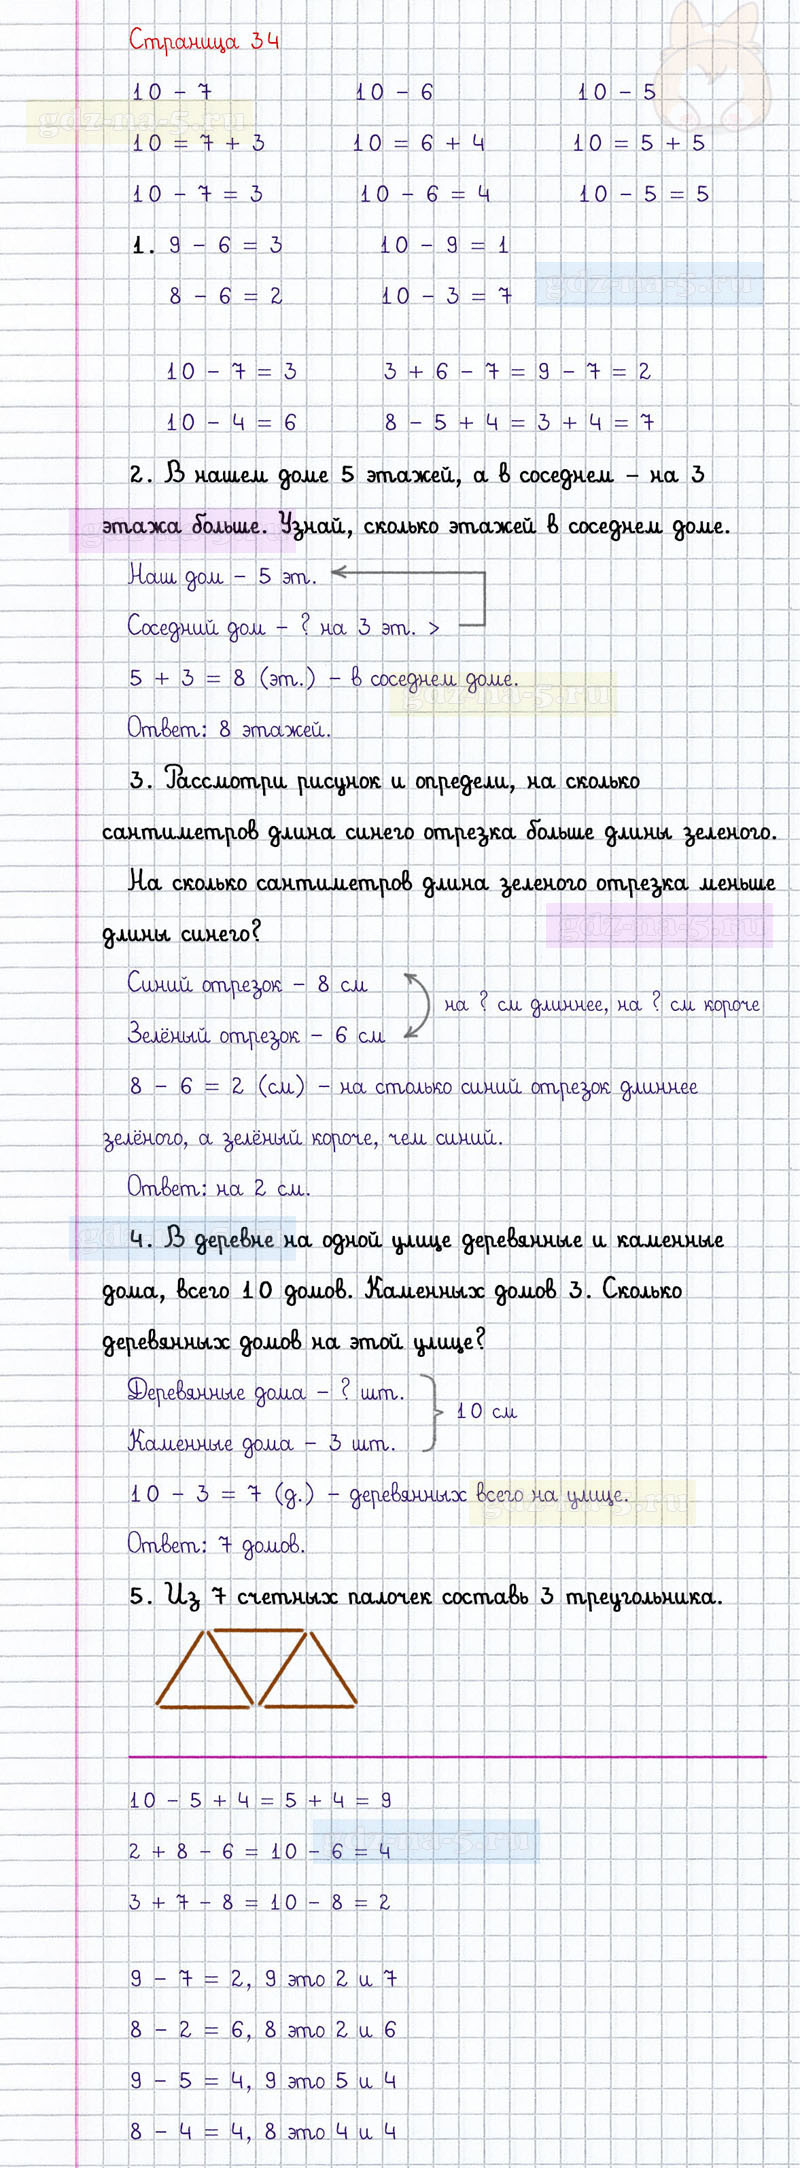 Страница 34
10 - 7 10 - 6 10 - 5
gdz-na-5.ru
10 = 7 + 3 10 = 6 + 4 10 = 5 + 5
10 - 7 = 3 10 - 6 = 4 10 - 5 = 5
1. 9 - 6 = 3 10 - 9 = 1
8 - 6 = 2 10 - 3 = 7
gdz-na-5.ru
10 - 7 = 3 3 + 6 - 7 = 9 - 7 = 2
10 - 4 = 6 8 - 5 + 4 = 3 + 4 = 7
2. В нашем доме 5 этажей, а в соседнем - на 3
этажа больше. Узнай, сколько этажей в соседнем доме.
Наш дом - 5 эт.
Соседний дом - ? на 3 эт. >
5 + 3 = 8 (эт.) - в соседнем доме.
gdz-na-5.ru
Ответ: 8 этажей.
3. Рассмотри рисунок и определи, на сколько
сантиметров длина синего отрезка больше длины зеленого.
На сколько сантиметров длина зеленого отрезка меньше
длины синего?
gdz-na-5.ru
Синий отрезок - 8 см
на ? см длиннее, на ? см короче
Зелёный отрезок - 6 см
8 - 6 = 2 (см) - на столько синий отрезок длиннее
зелёного, а зелёный короче, чем синий.
Ответ: на 2 см.
gdz-na-5.ru
4. В деревне на одной улице деревянные и каменные
дома, всего 10 домов. Каменных домов 3. Сколько
деревянных домов на этой улице?
Деревянные дома - ? шт.
10 см
Каменные дома - 3 шт.
10 - 3 = 7 (д.) - деревянных всего на улице.
gdz-na-5.ru
Ответ: 7 домов.
5. Из 7 счетных палочек составь 3 треугольника.
10 - 5 + 4 = 5 + 4 = 9
gdz-na-5.ru
2 + 8 - 6 = 10 - 6 = 4
3 + 7 - 8 = 10 - 8 = 2
9 - 7 = 2, 9 это 2 и 7
8 - 2 = 6, 8 это 2 и 6
9 - 5 = 4, 9 это 5 и 4
8 - 4 = 4, 8 это 4 и 4